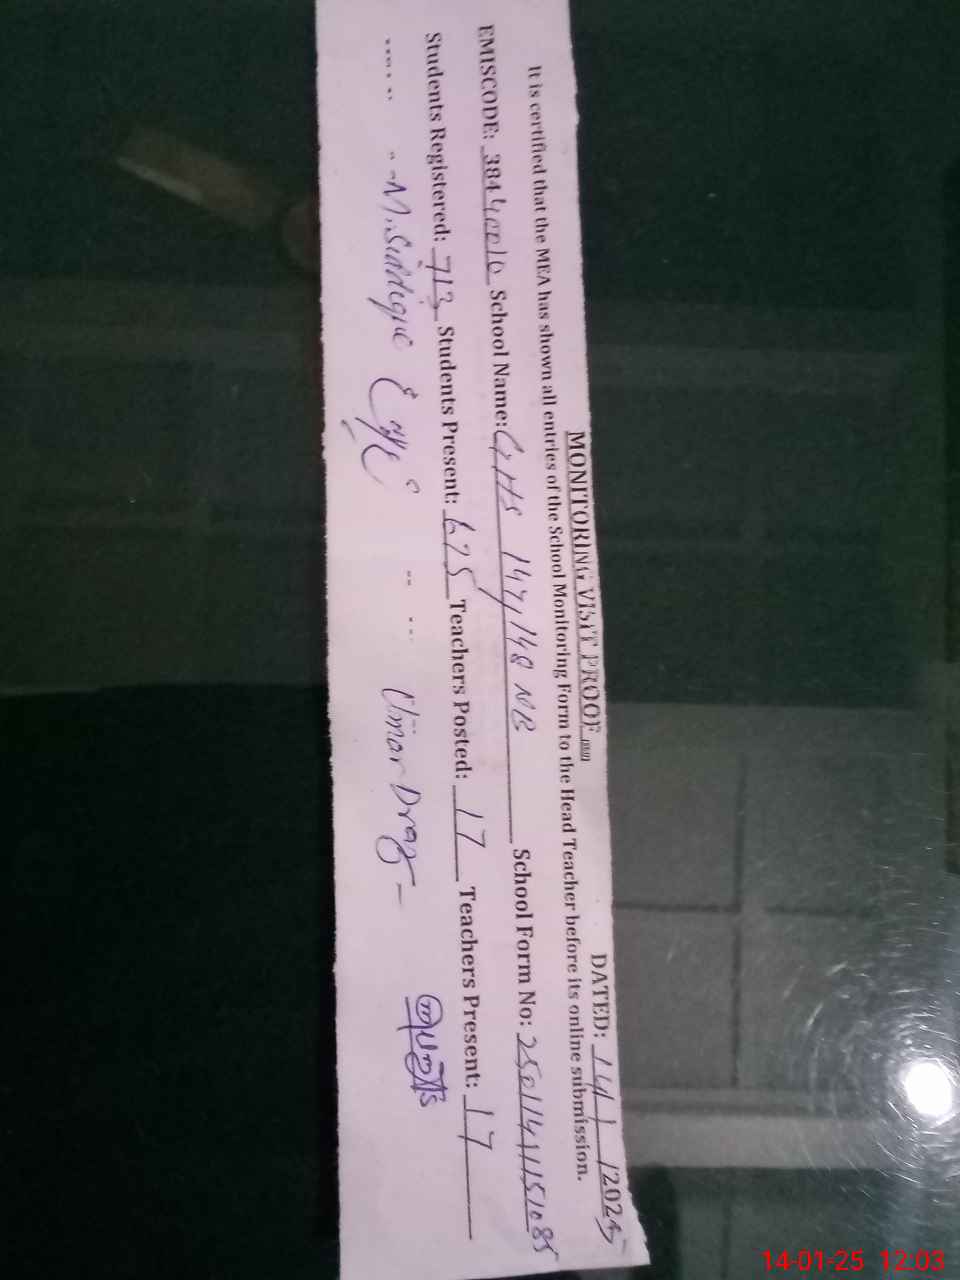 MONITORING VISIT PROOF
DATED: 14/1/2025
It is certified that the MEA has shown all entries of the School Monitoring Form to the Head Teacher before its online submission.
EMISCODE: 38440010 School Name: GHS 147,148 NB School Form No: 25011411151085
Students Registered: 713 Students Present: 675 Teachers Posted: 17 Teachers Present: 17
M. Siddique Umar Draz
14-01-25 12:03